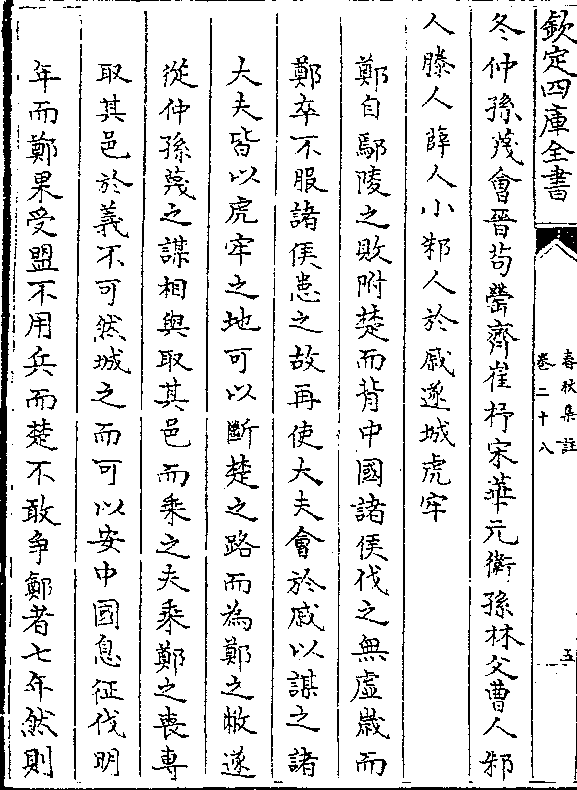 欽定四庫全書
春秋集註
卷二十八
五
冬仲孫蔑會晉荀罃齊崔杼宋華元衛孫林父曹人邾
人滕人薛人小邾人於戚遂城虎牢
鄭自鄢陵之敗附楚而背中國諸侯伐之無虛歲而
鄭卒不服諸侯患之故再使大夫會於戚以謀之諸
大夫皆以虎牢之地可以斷楚之路而為鄭之蔽遂
從仲孫蔑之謀相與取其邑而乘之夫乘鄭之喪專
取其邑於義不可然城之而可以安中國息征伐明
年而鄭果受盟不用兵而楚不敢争鄭者七年然則